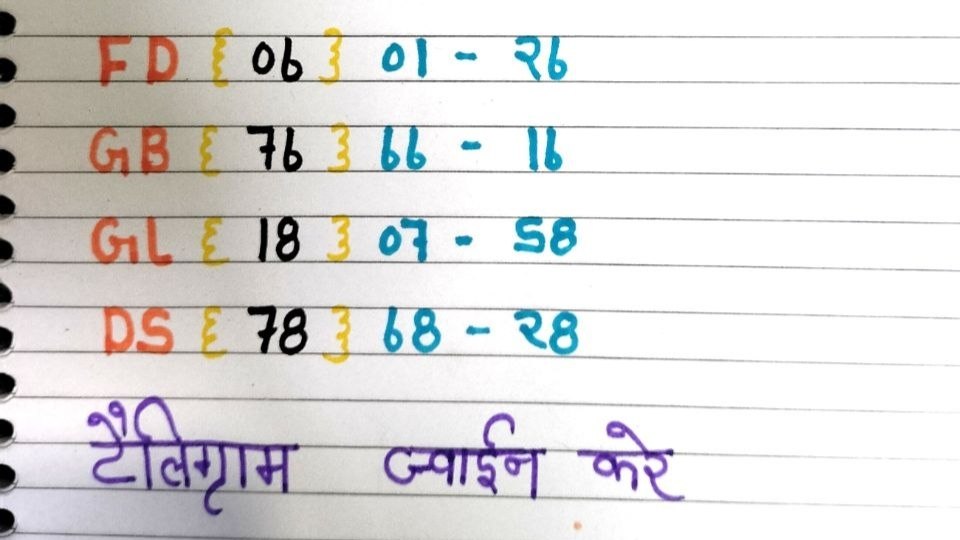 FD { 06 } 01 - 26
GB { 76 } 66 - 16
GL { 18 } 07 - 58
DS { 78 } 68 - 28
टैलिग्राम ज्वाईन करे